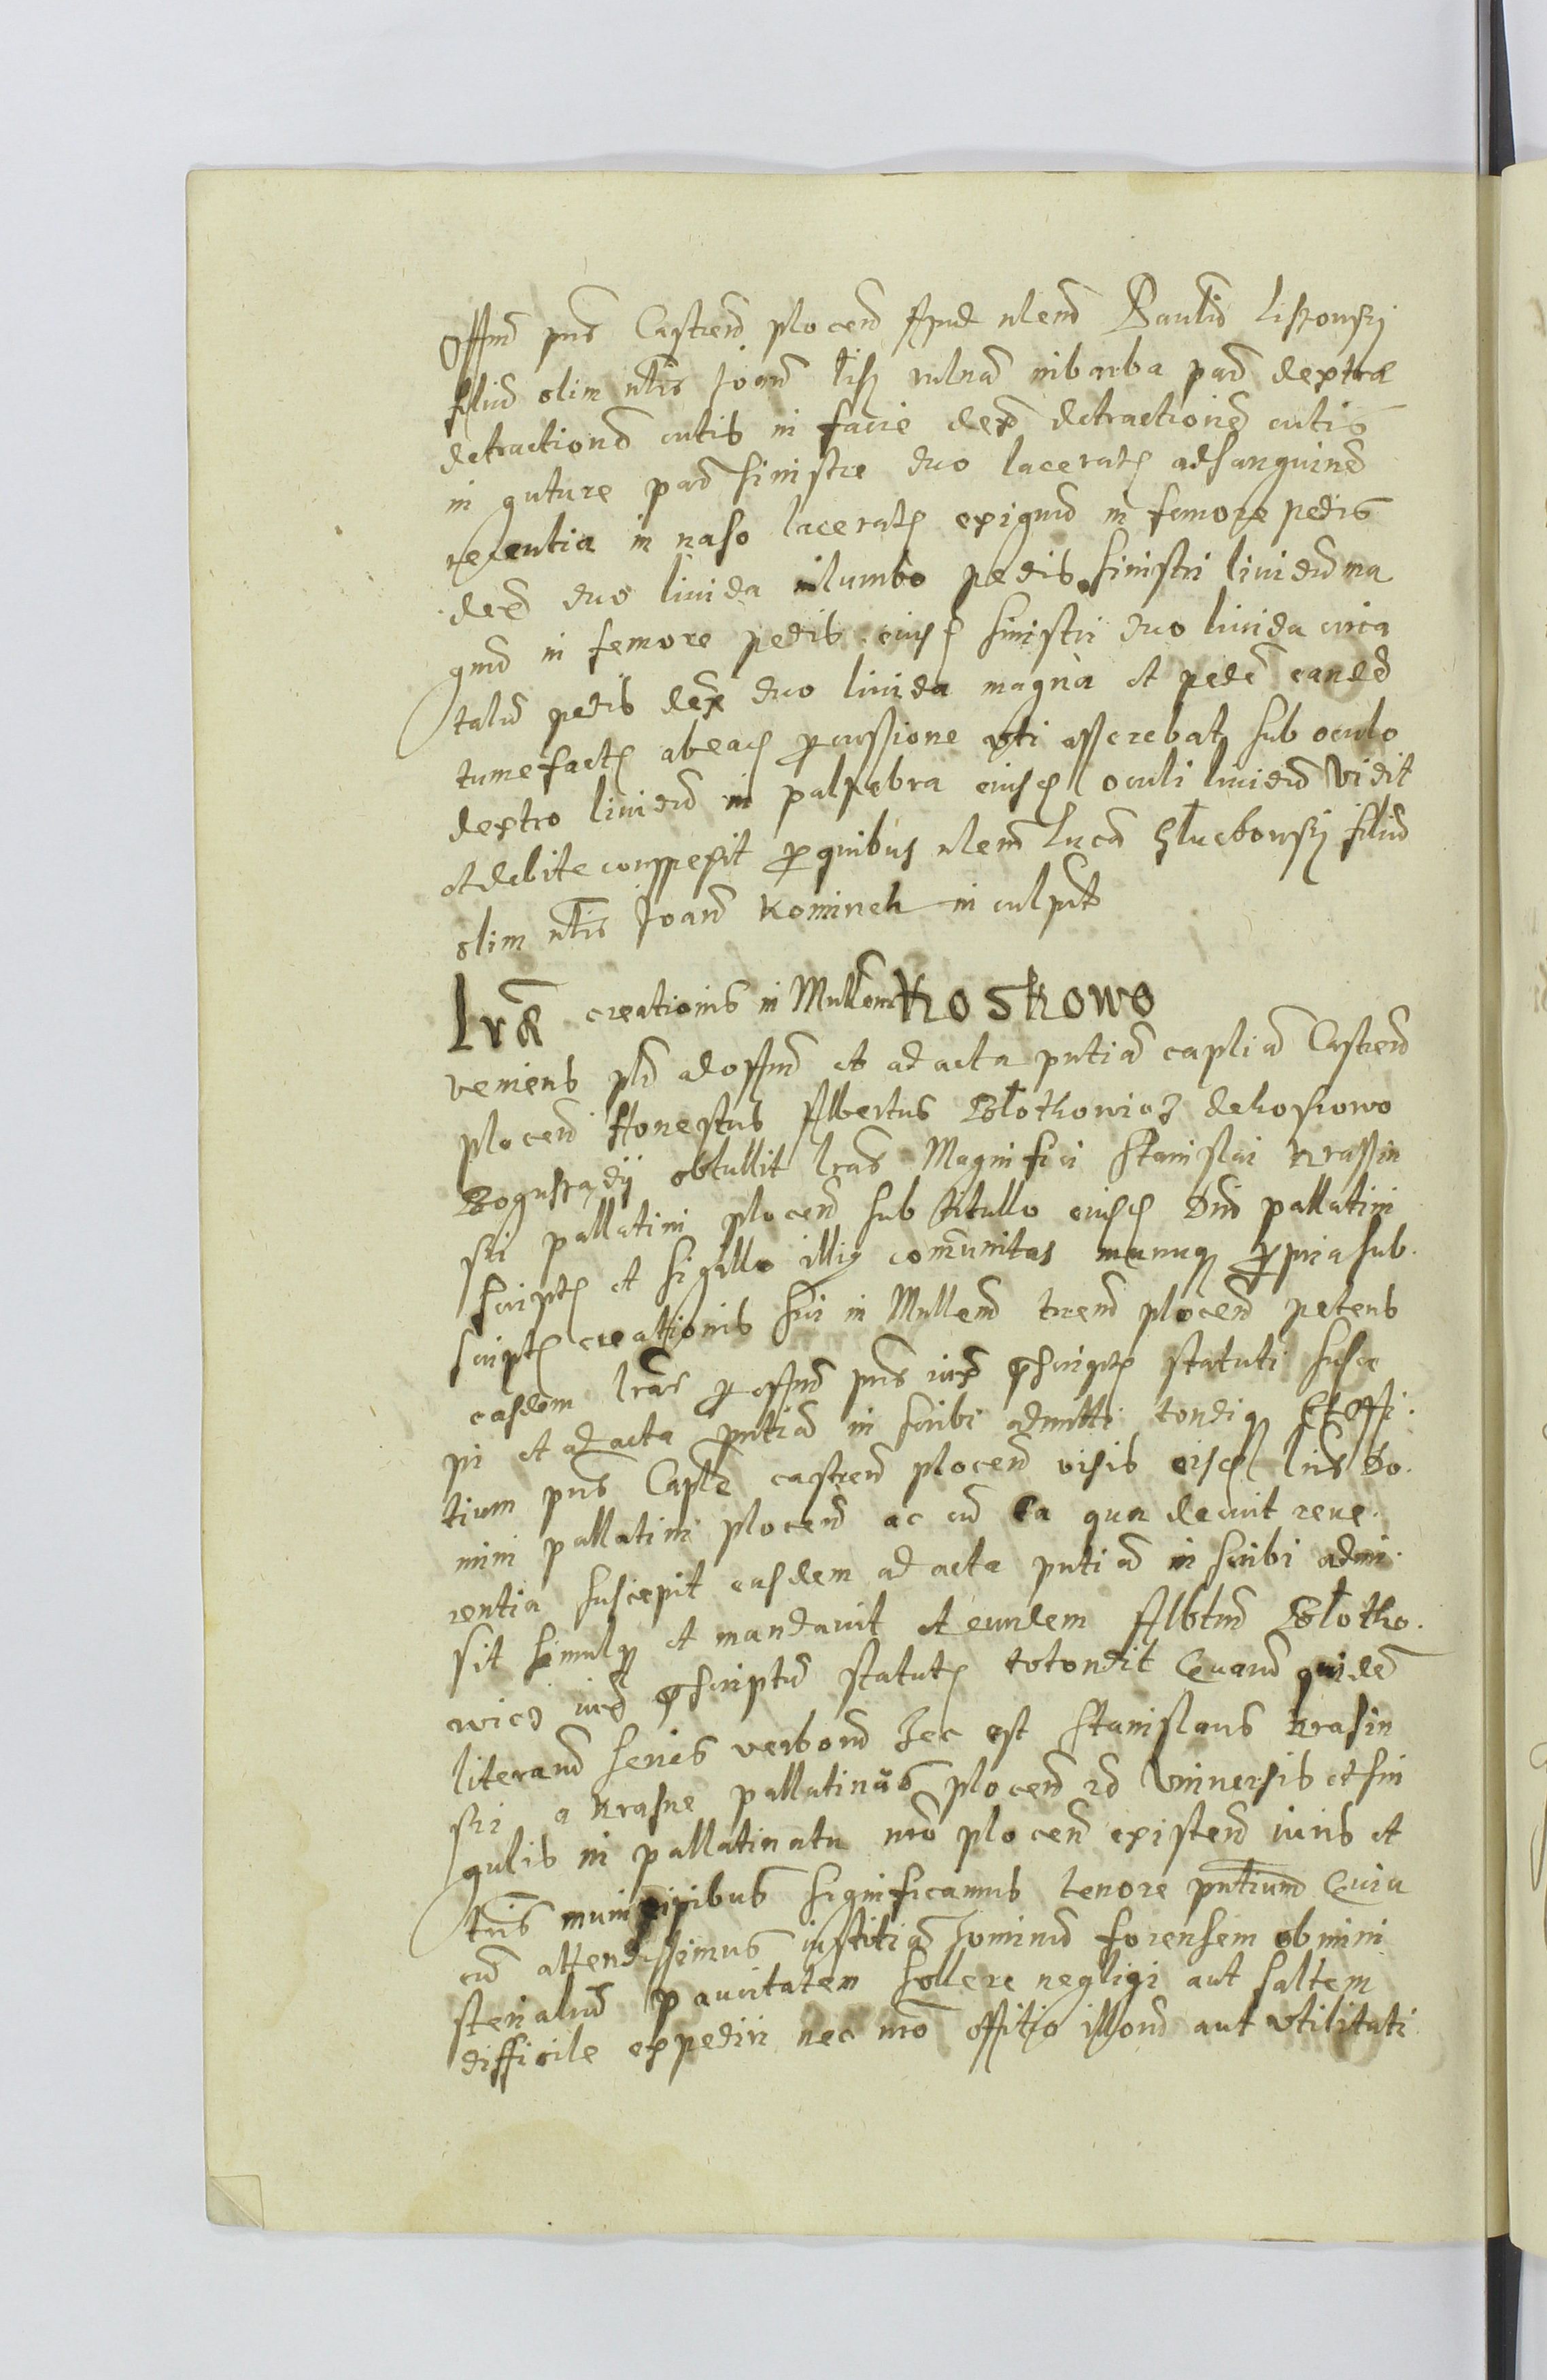 Offm pns Castren plocen apud nlem Paulu Liszowsky
filiu olim nlis Joan Lisz vulna in barba par dextra
detraction cutis in facie dex detractione cutis
in guture par sinistre duo lacerat ad sanguine
recentia in naso lacerat exiguu in femore pedis
dex duo livida in lumbo pedis sinistri lividu ma
gnu in femore pedis eiusd sinistri duo livida circa
talu pedis dex duo livida magna et pede eande
tumefact ab ead percussione uti asserebat sub oculo
dextro lividu in palpebra eiusd oculi lividu vidit
et debite conspexit pro quibus nlem Luca Głuchowsky filiu
olim nlis Joan Kominek in culpat
Lra creationis in Mullem Koskowo
veniens plr ad offm et ad acta pntia caplia Castren
plocen Honestus Albertus Błothowicz de Koskowo
Boguszadÿ obtullit lras Magnifici Stanislai Krassin
ski pallatini plocen sub titullo eiusd Dni pallatini
script et sigillo illiq comunitas manuq propria sub
script creationis sui in Mullem tren plocen petens
easdem lras per offm pns iux pscript statuti susci
pi et ad acta pntia in scribi admitti tondiq Et offi
tium pns Caplr castren plocen visis eisd lris Do
mini pallatini plocen ac cu ea qua decuit reve
rentia suscepit easdem ad acta pntia in scribi admi
sit simulq et mandavit et eundem Albtm Błotho
wicz iux pscriptu statut totondit Quaru quide
literaru series verboru hec est Stanislaus Krasin
ski a Krasne pallatinus plocen rd Universis et sin
gulis in pallatinatu nro plocen existen iuris et
tris municipibus significamus tenore pntium Quia
cu attendissimus iustitia hominu forensem ob mini
sterialiu paucitatem sollere negligi aut saltem
difficile expediri nec nro offitio illoru aut utilitati